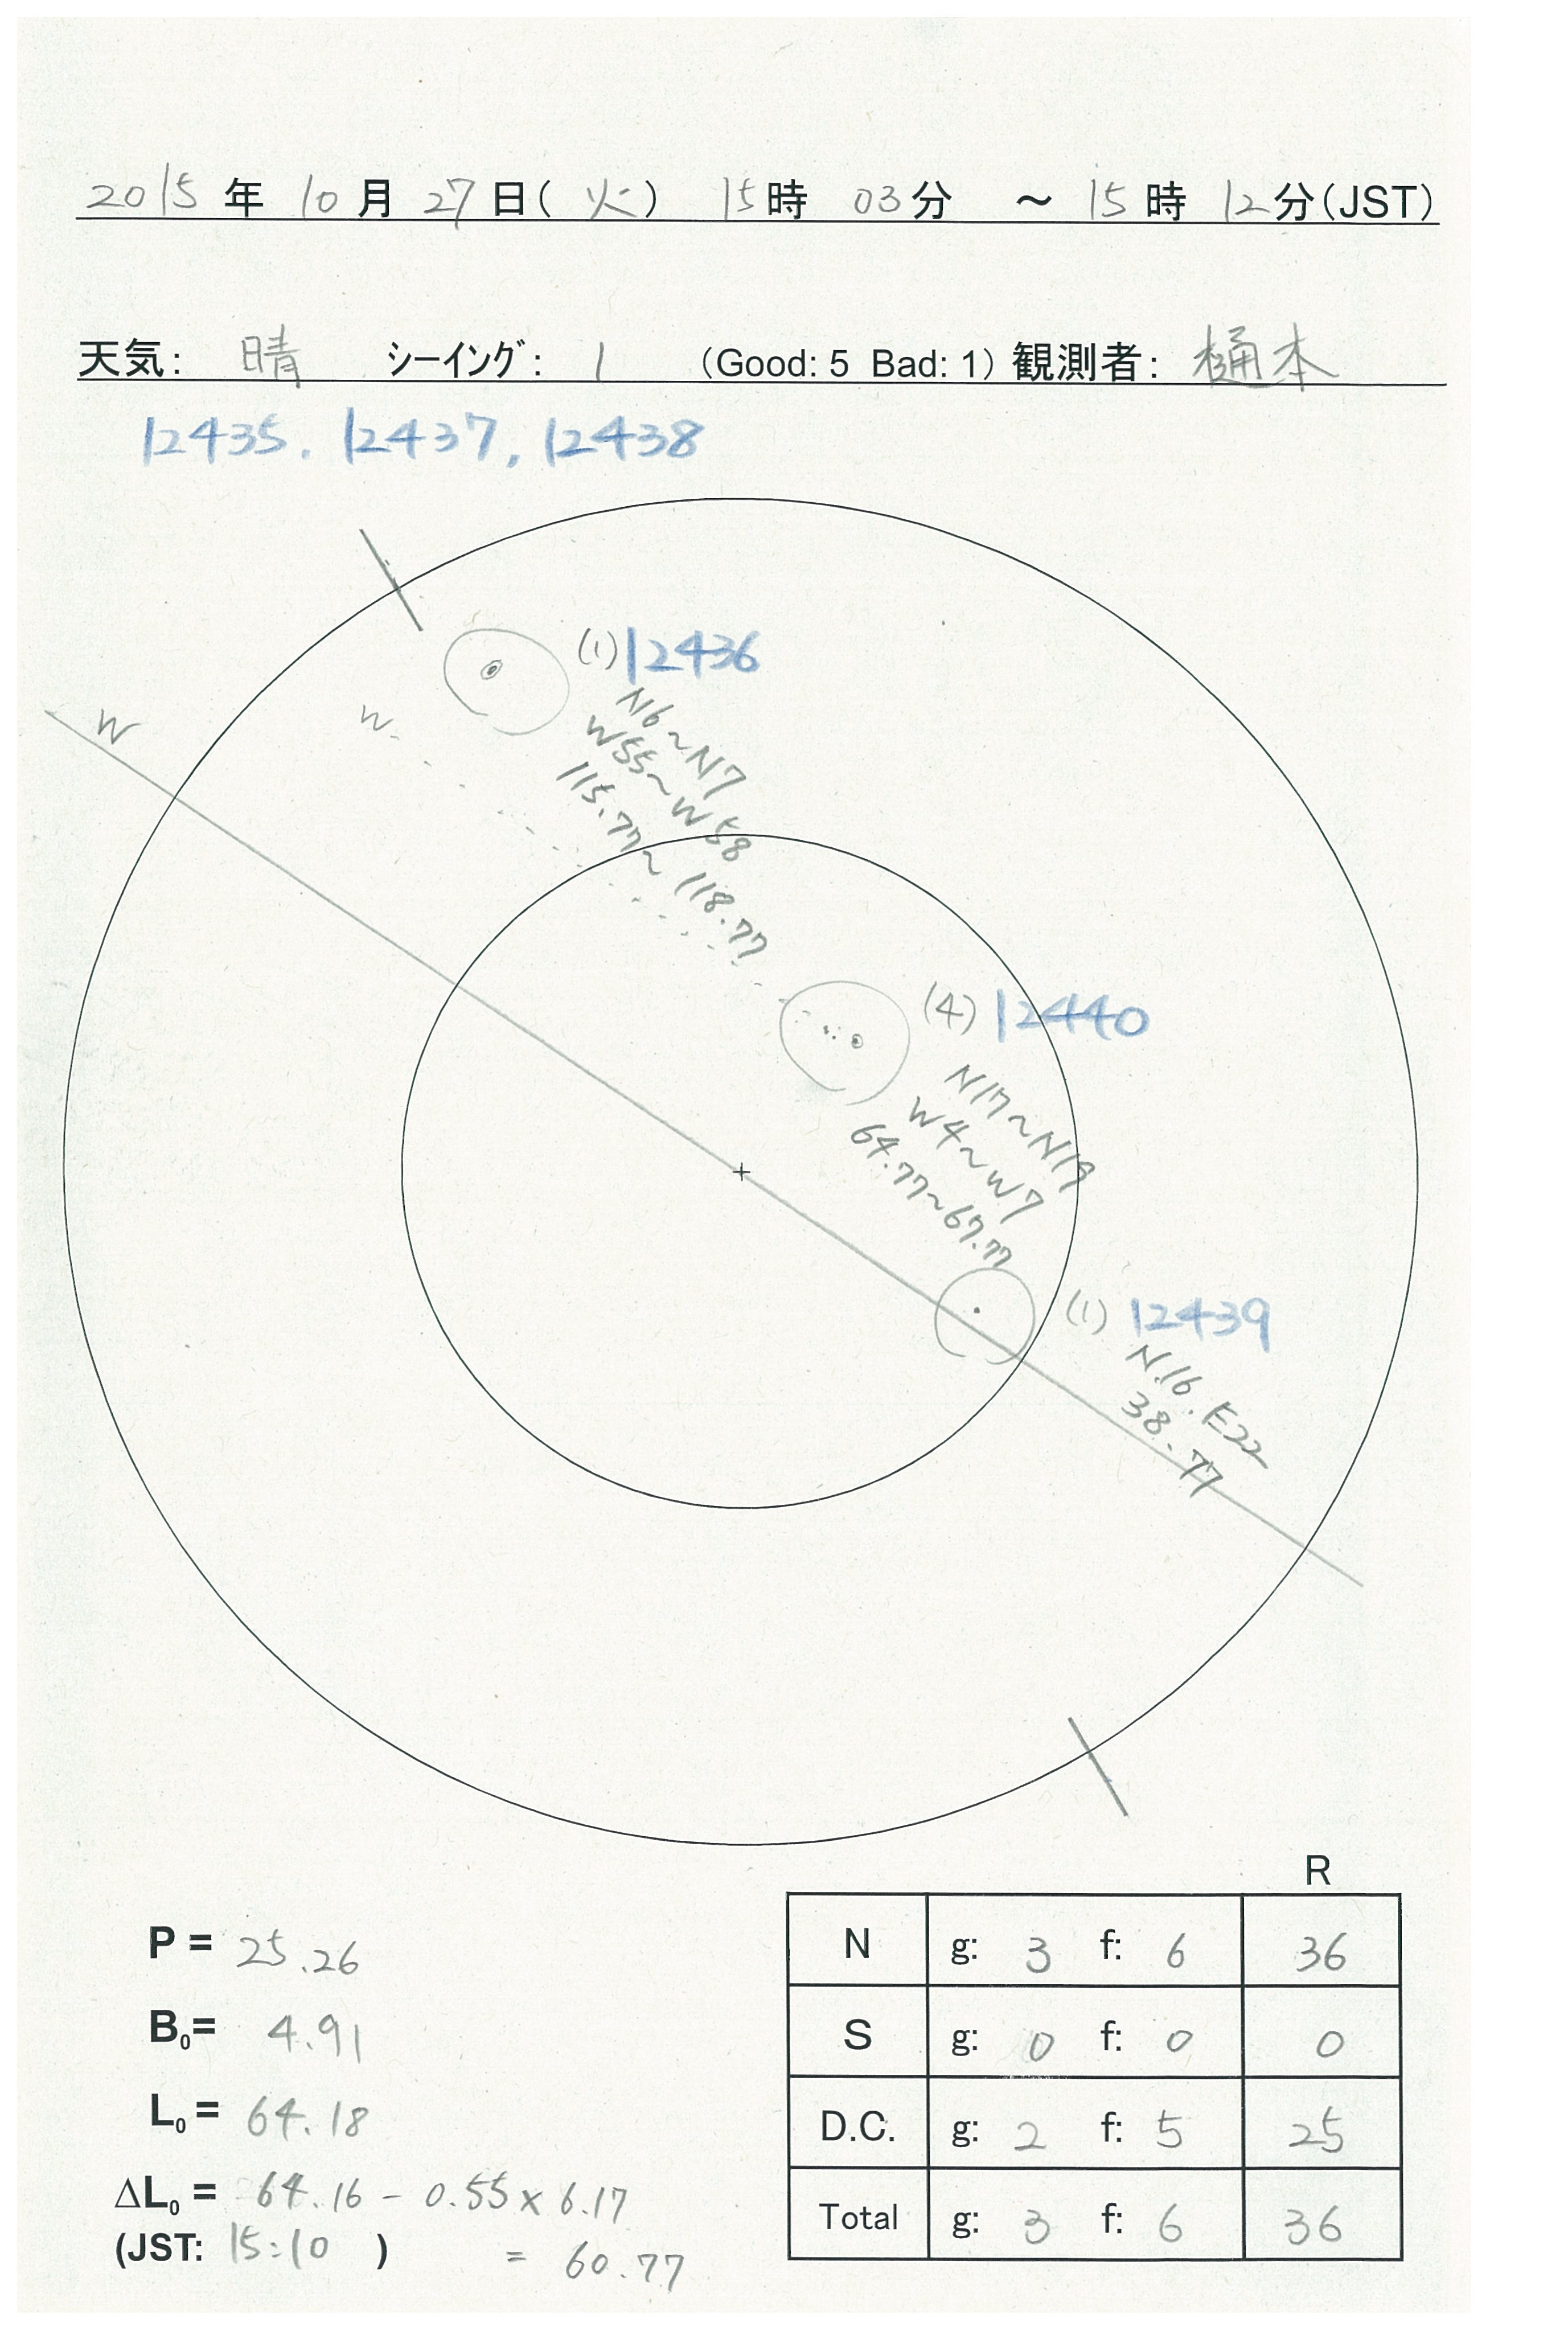 2015年 10月 27日(火) 15時 03分 ～ 15時 12分(JST)
天気: 晴 シーイング: 1 (Good: 5 Bad: 1) 観測者: 樋本
12435. 12437, 12438
(1) 12436
N6~N7
W55~W58
115.77~118.77
W
W
(4) 12440
N17~N19
W4~W7
64.77~67.77
(1) 12439
N16. E22
38.77
R
N g: 3 f: 6 36
S g: 0 f: 0 0
D.C. g: 2 f: 5 25
Total g: 3 f: 6 36
P = 25.26
B₀= 4.91
L₀ = 64.18
ΔL₀ = 64.16 - 0.55 x 6.17
(JST: 15:10 ) = 60.77